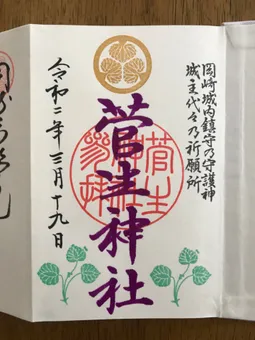 岡崎城内鎮守の守護神
城主代々乃祈願所
菅生神社
令和二年三月十九日